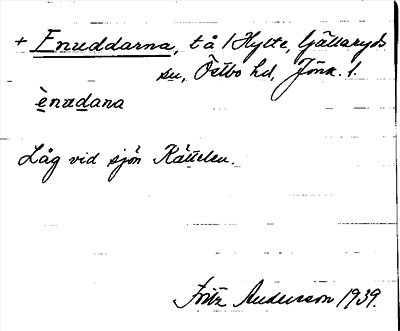 + Enuddarna, t å / Hytte, Gällaryds
sn, Östbo hd, Jönk. l.
ènudana
Låg vid sjön Rättelen.
Fritz Anderson 1939.